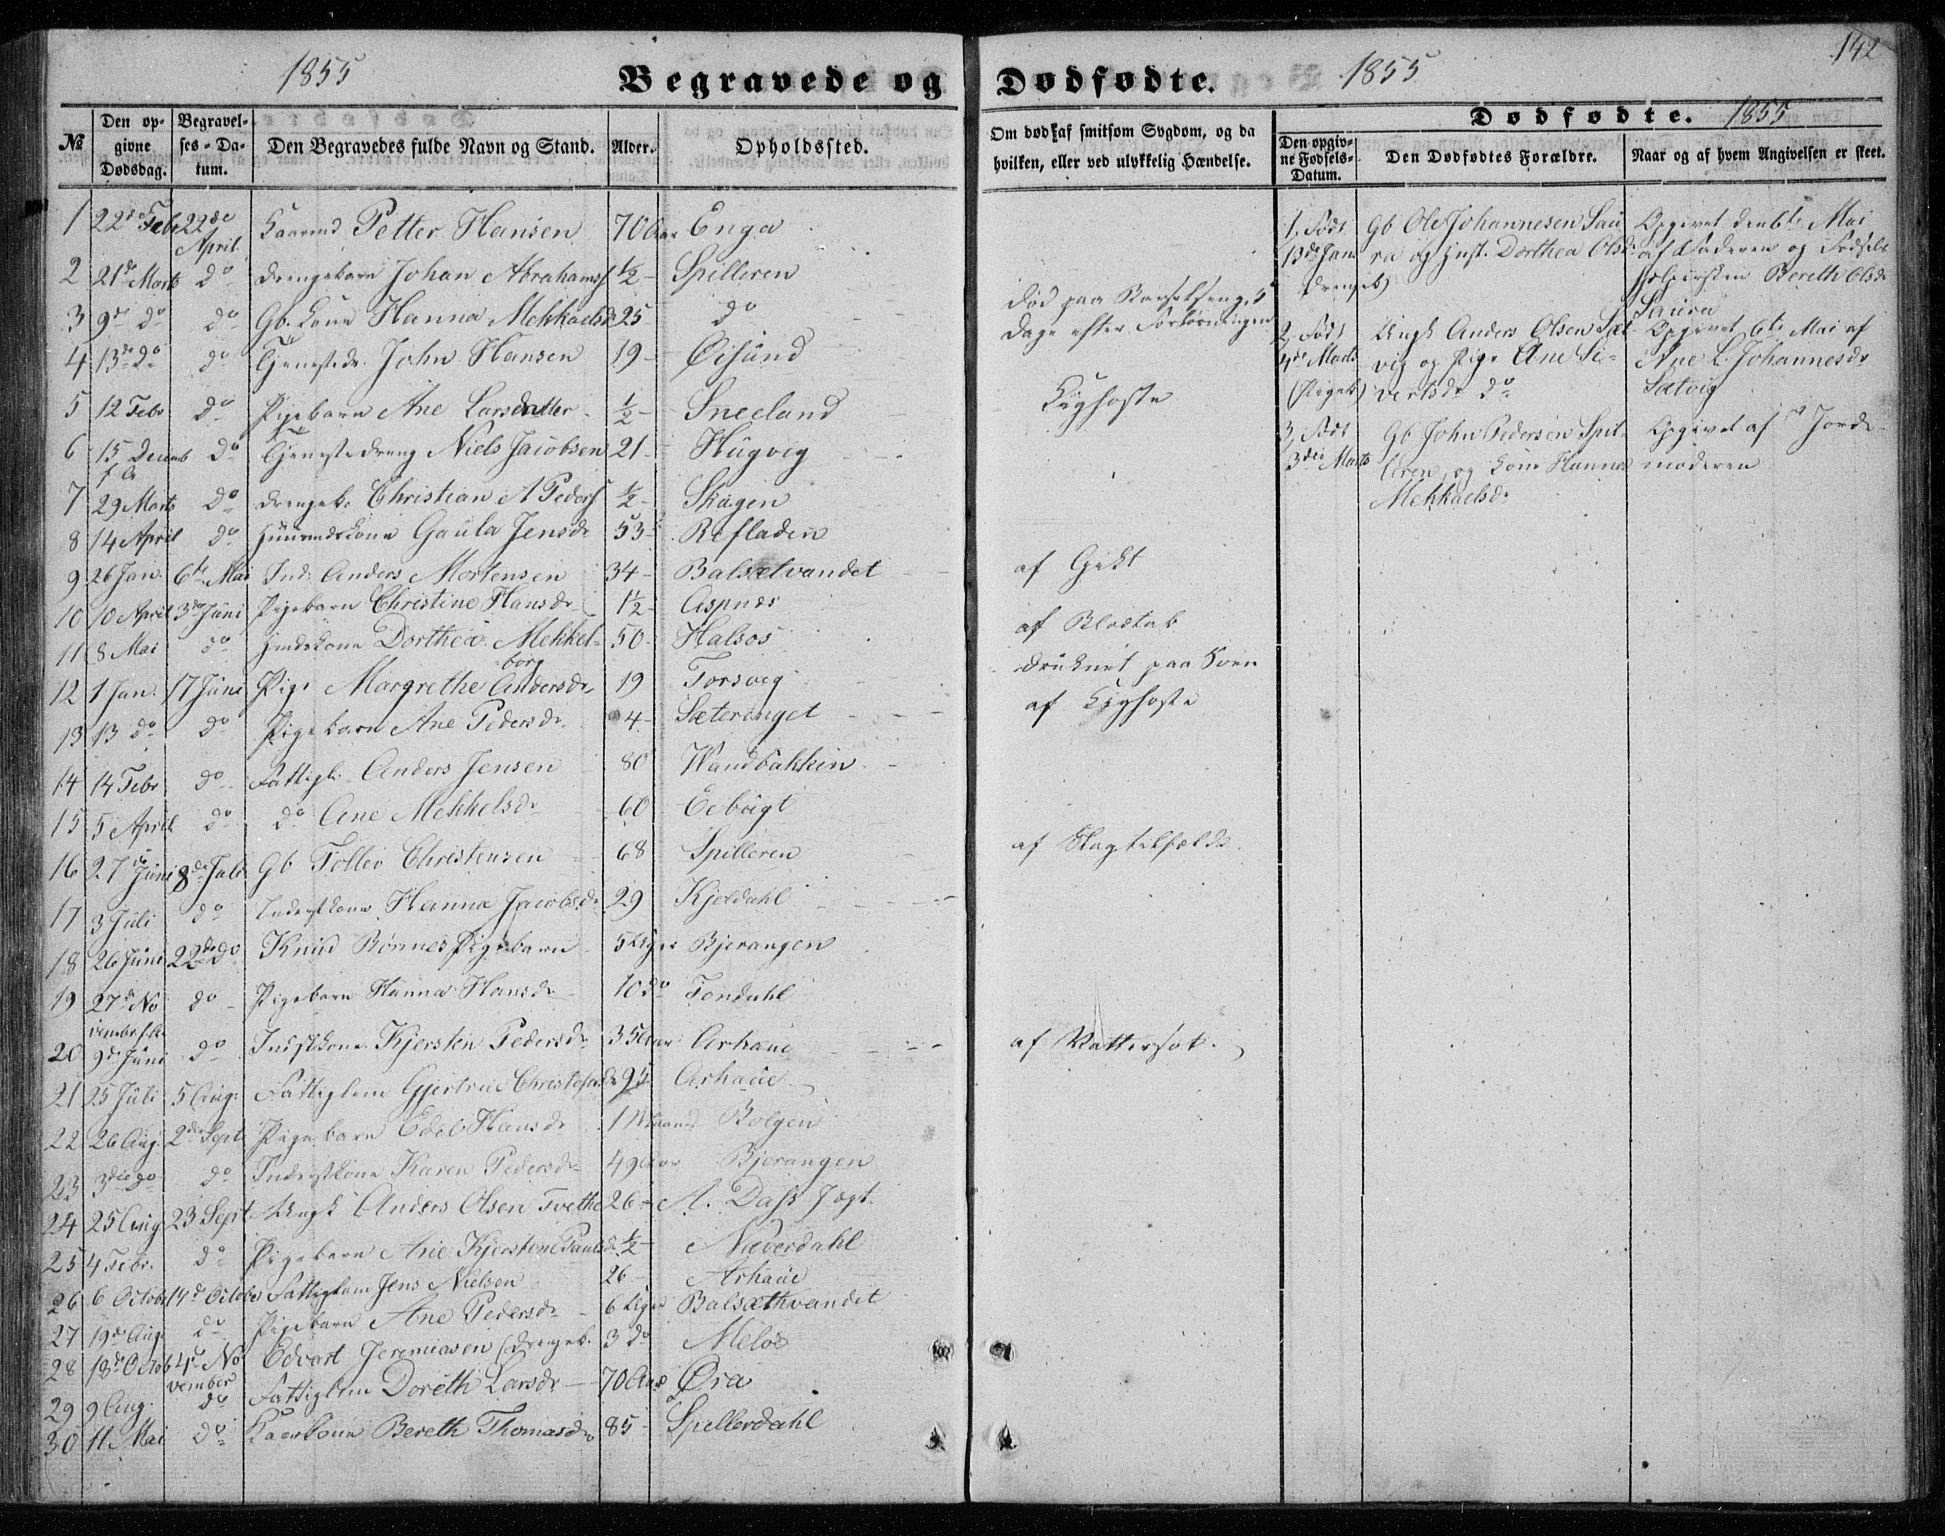 1855 Begravede og Dødfødte. 1855 142
Dødfødte. 1855
№ Den opgivne Dødsdag. Begravelses-Datum. Den Begravedes fulde Navn og Stand. Alder. Opholdssted.
Om død af smitsom Sygdom, og da hvilken, eller ved ulykkelig Hændelse.
Den opgivne Fødsels-Datum. Den Dødfødtes Forældre. Naar og af hvem Angivelsen er skeet.
1 22de Feb 22de April Kaarmd Petter Hansen 70 Aar Enga
2 21de Marts do Drengebarn Johan Abrahams. ½ - Spilleren
3 9de do do Gb. Kone Hanna Mekkaelsdr 25 - do
4 13de do do Tjenestedr. John Hansen 19 - Øisund
5 12 Febr do Pigebarn Ane Larsdatter ½ - Sneeland
6 15 Decemb f. A. do Tjenestedreng Niels Jacobsen 21 - Hugvig
7 29 Marts do Drengeb. Christian A Peders. ½ - Skagen
8 14 April do Huusmdskone Gaula Jensdr 53 - Refladen
9 26 Jan. 6te Mai Ind. Anders Mortensen 34 - Balsætvandet
10 10 April 3die Juni Pigebarn Christine Hansdr 1½ - Aspnes
11 8 Mai do Hmdskone Dorthea Mekkelborg 50 - Halsos
12 1 Jan. 17 Juni Pige Margrethe Andersdr 19 Torsvig
13 13 do do Pigebarn Ane Pedersdr 4 - Sæteringet
14 14 Febr do Fattigl. Anders Jensen 80 Wandbakken
15 5 April do do Ane Mekkelsdr 60 Eebugt
16 27de Juni 8de Juli Gb Tollev Christensen 68 Spilleren
17 3 Juli do Inderstkone Hanna Jacobsdr 29 Kjeldahl
18 26 Juni 22de do Knud Rønnes Pigebarn 5 Uger Bjerangen
19 27de November f. A. do Pigebarn Hanna Hansdr 10 do Tendahl
20 9de Juni do Indstkone Kjersten Pedersdr 35 Aar Arhaue
21 25 Juli 5 Aug. Fattiglem Gjertrud Christofersdr 95 Arhaue
22 26 Aug. 2den Sept Pigebarn Edel Hansdr 1 Maaned Bolgen
23 3die do do Inderstkone Karen Pedersdr 49 Aar Bjerangen
24 25 Aug 23 Sept. Ungk Anders Olsen Tvethe 26 - A. Dass Jægt.
25 4 Febr. do Pigebarn Ane Kjerstine Paulsdr ½ - Næverdahl
26 6 Octobr 14de October Fattiglem Jens Nielsen 26 - Arhaue
27 19de Aug. do Pigebarn Ane Pedersdr - 6 Uger Balsæthvandet
28 18de Octob 4de November Edvart Jeremiasen (Drengeb. 3 do Meløe
29 9 Aug. do Fattiglem Doreth Larsdr - 70 Aar Øra
30 11 Mai do Kaarkone Bereth Thomasdr 85 - Spellerdahl
død paa Barselseng, 5
Dage efter Forløsningen
Kighoste
af Gikt
af Blodtab
druknet paa Søen
af Kighoste
af Slagtilfælde.
af Vattersot.
1, Født 13de Jan (Drengeb) Gb Ole Johannesen Saura og Hust. Dorthea Olsdr Opgivet den 6te Mai af Faderen og Fødselshjælpersken Bereth Olsdr Saura
2, Født 4de Marts (Pigeb) Ungk Anders Olsen Sætvig og Pige Ane Sivertsdr do Opgivet 6te Mai af Ane L. Johannesdr Sætvig
3, Født 3die Marts Gb John Pedersen Spilleren og Kone Hanna Mekkaelsdr Opgivet af Jordemoderen